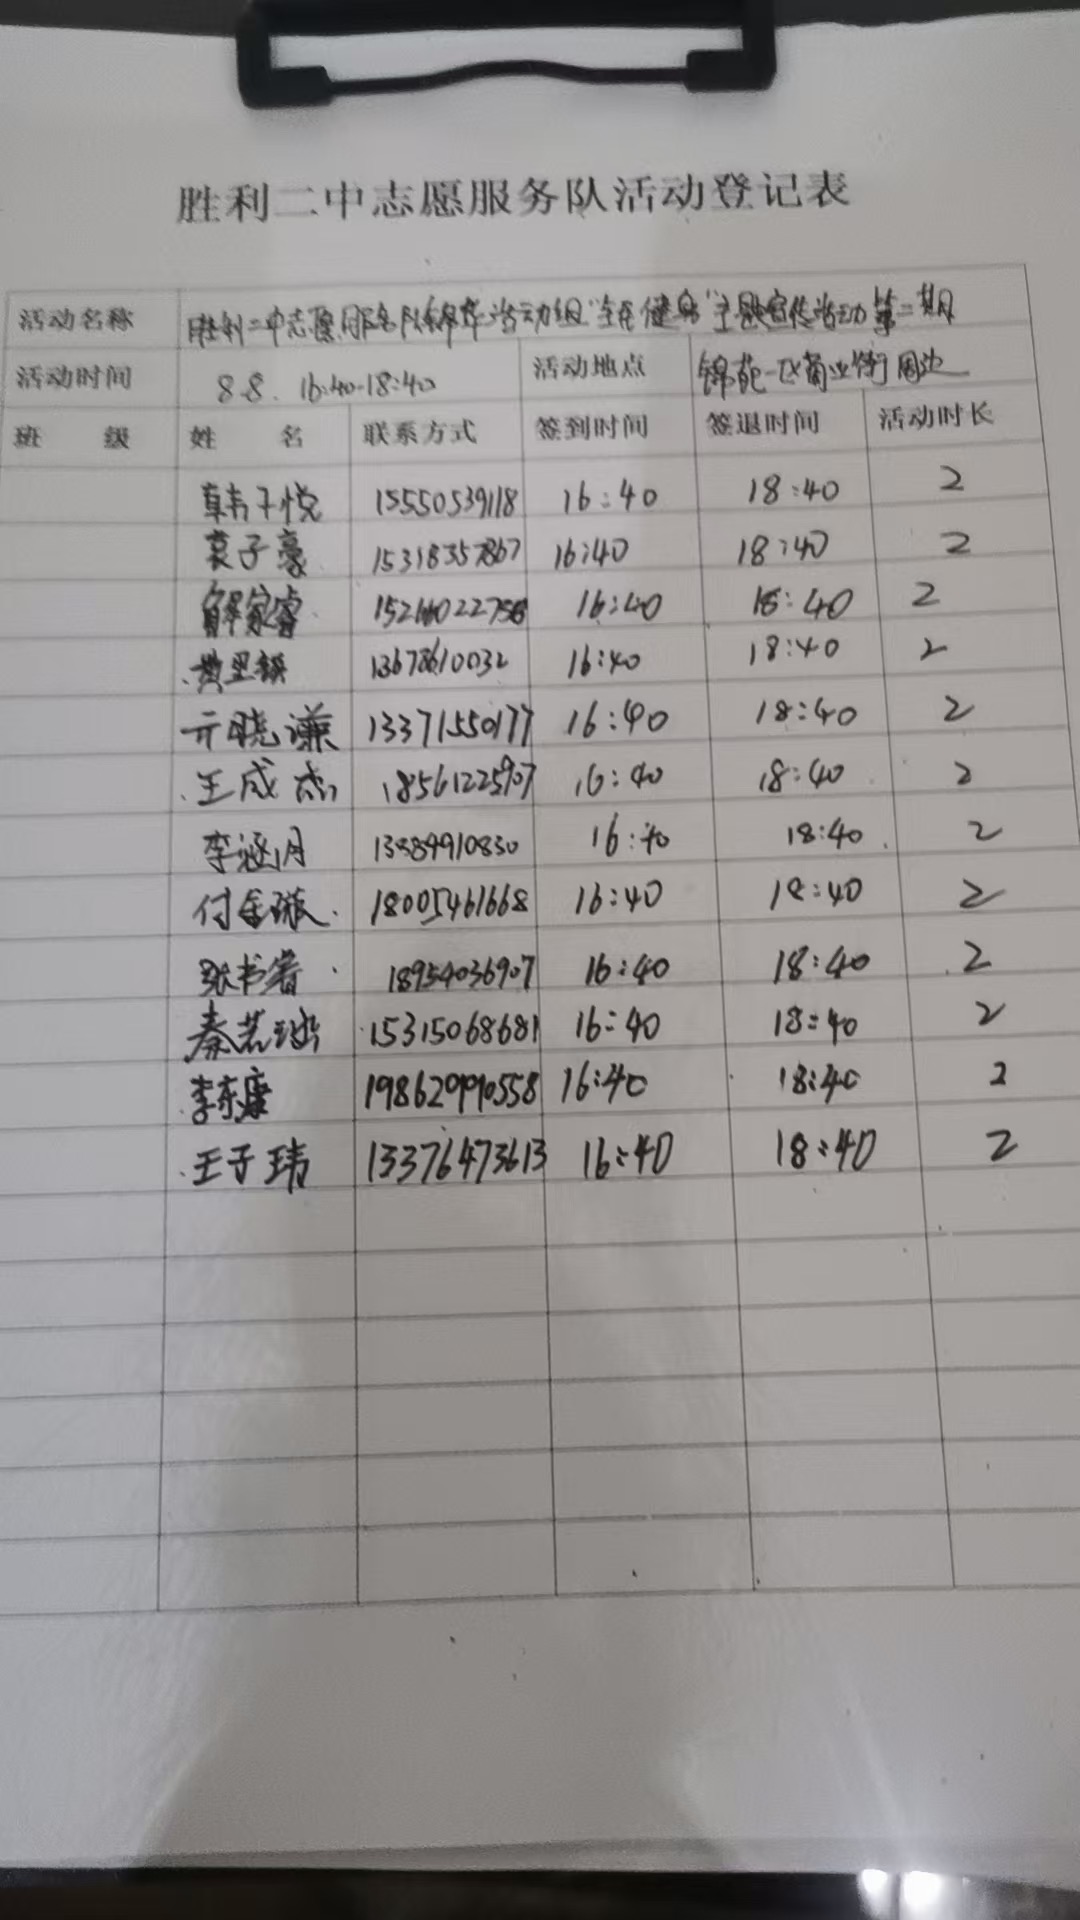 胜利二中志愿服务队活动登记表
活动名称 胜利二中志愿服务队锦华活动组"全民健身"主题宣传活动第二期
活动时间 8.8. 16:40-18:40 活动地点 锦苑一区商业街周边
班 级 姓 名 联系方式 签到时间 签退时间 活动时长
韩子悦 15550539118 16:40 18:40 2
袁子豪 15318357867 16:40 18:40 2
解家睿 16:40 18:40 2
13678610032 16:40 18:40 2
亓晓谦 13371550177 16:40 18:40 2
王成杰 18561225907 16:40 18:40 2
李涵月 16:40 18:40 2
付金璇 18005461668 16:40 18:40 2
张书睿 18954036907 16:40 18:40 2
秦若 15315068681 16:40 18:40 2
李东康 16:40 18:40 2
王子玮 13376473613 16:40 18:40 2